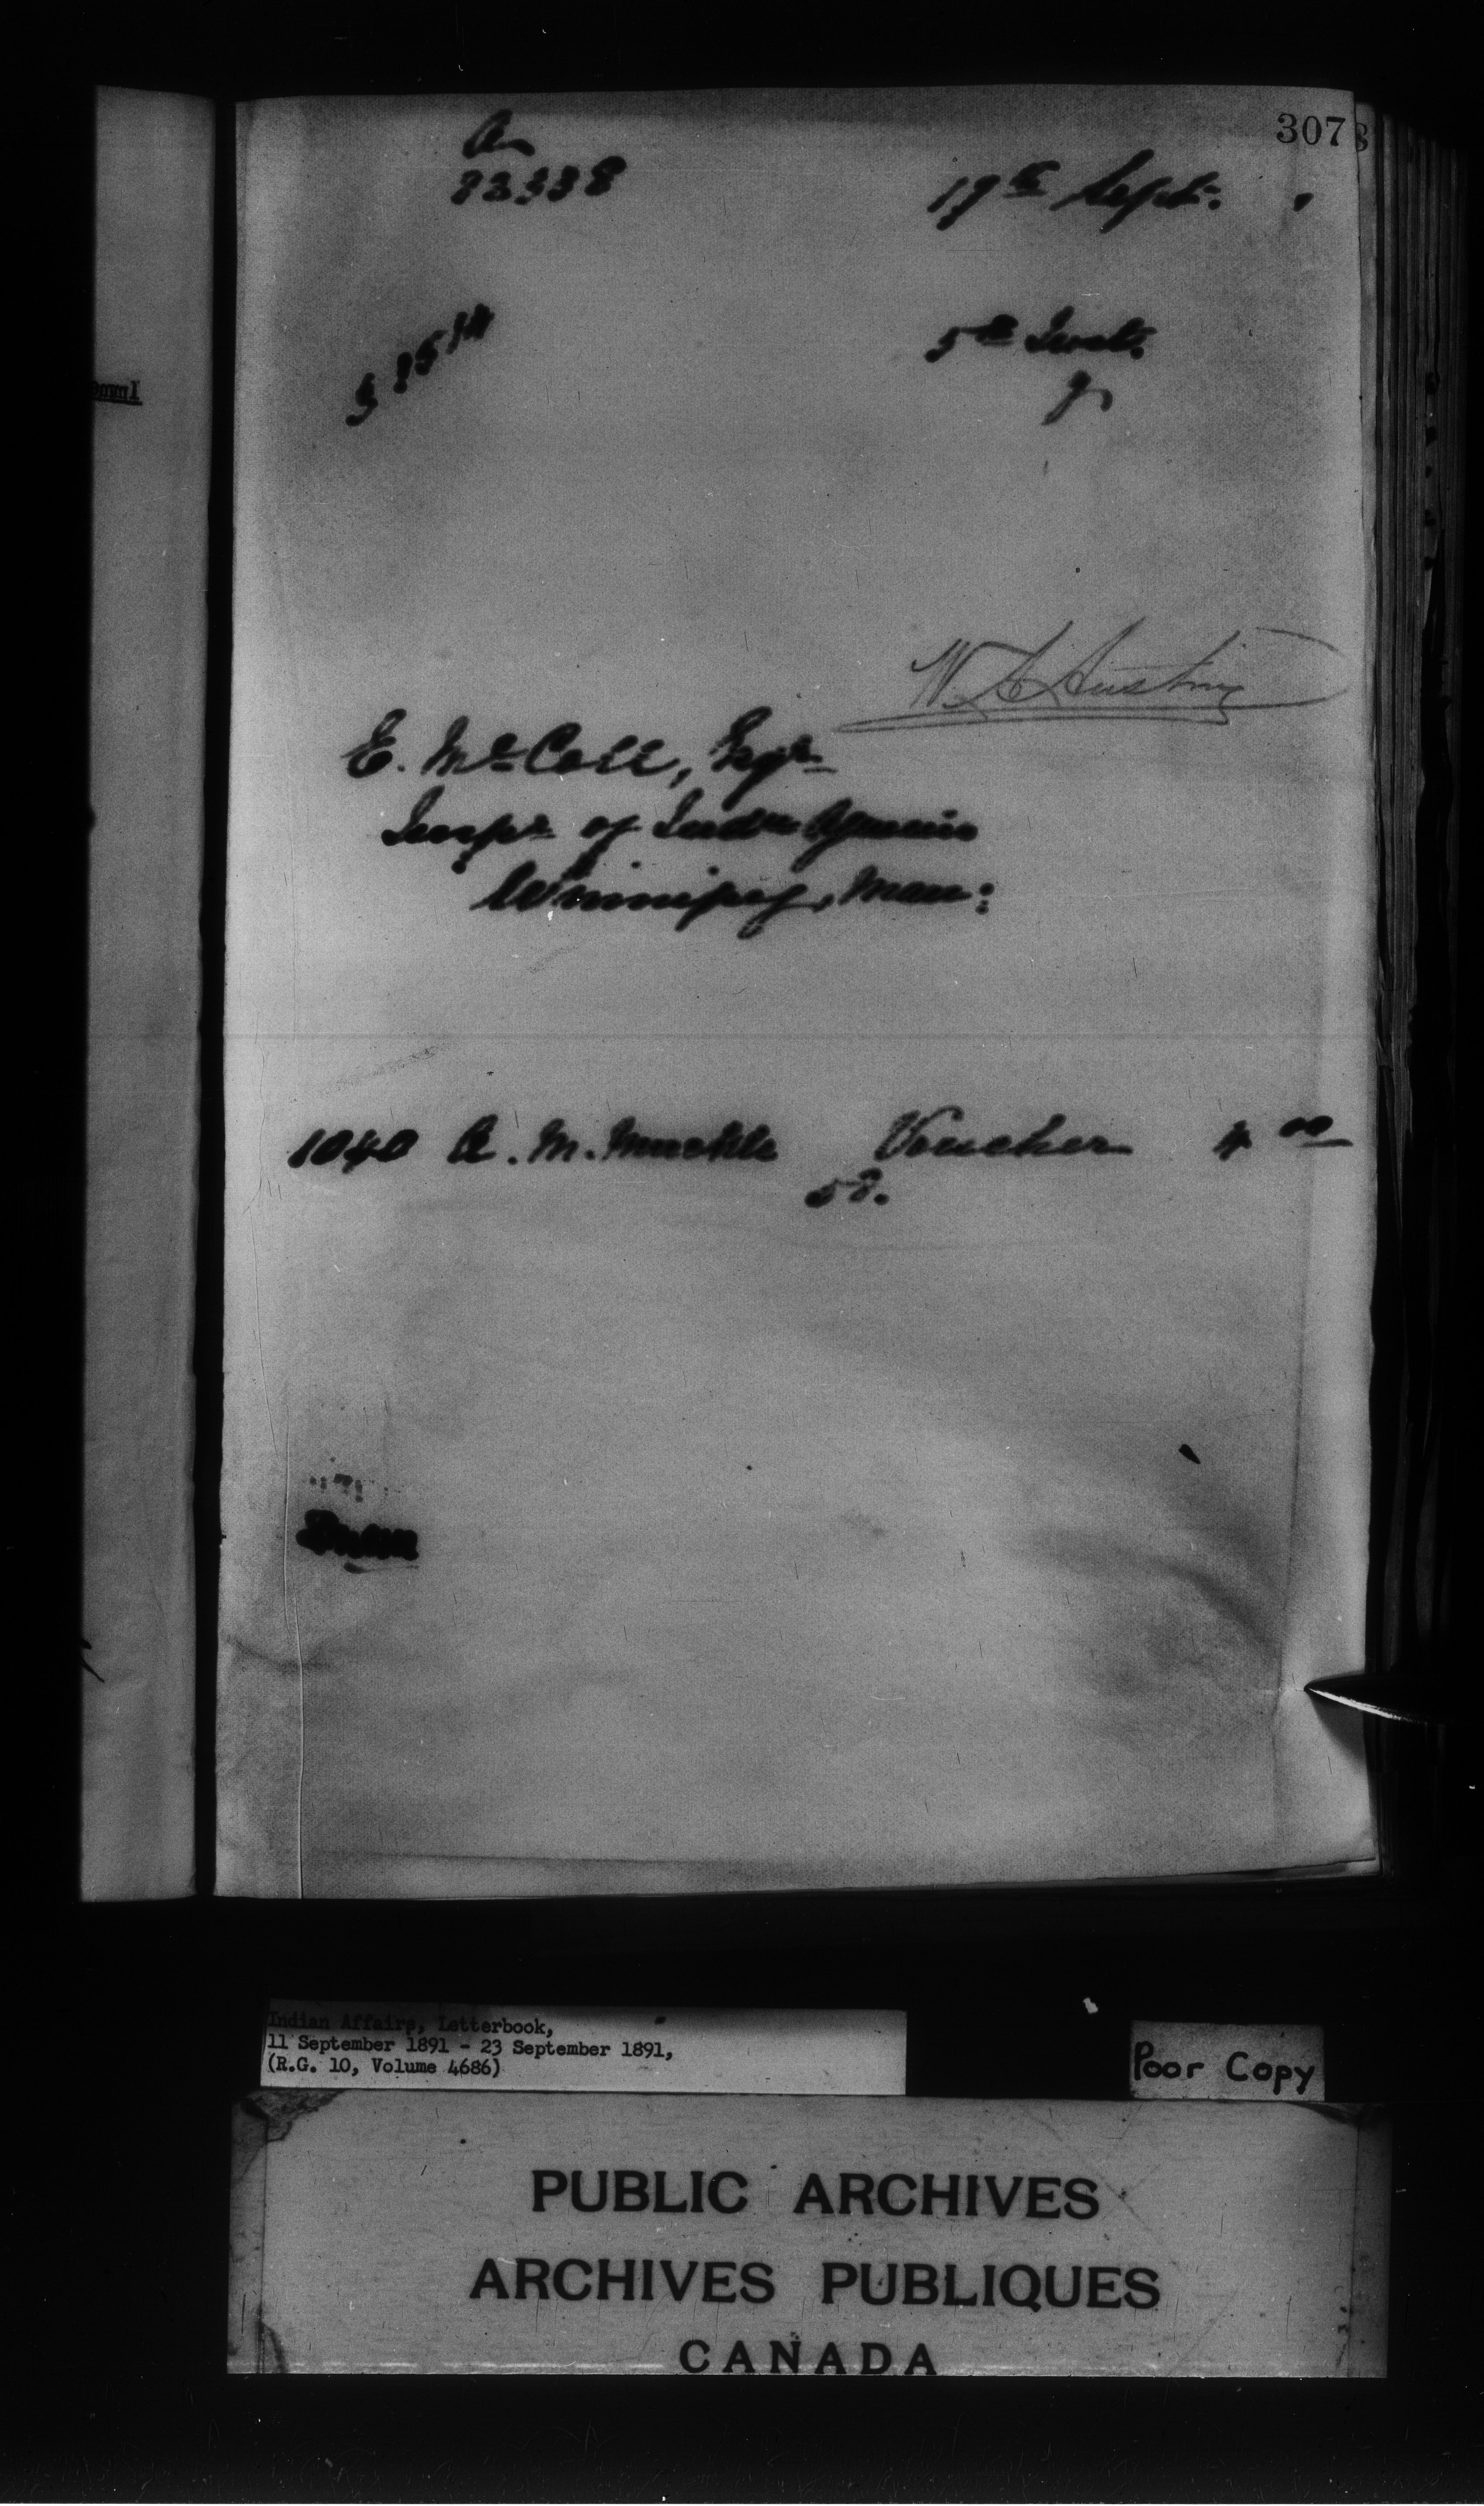 307
82338
17th Sept.
5th Inst.
W. A. Austin
E. McColl, Esqr.
Inspr. of Indn. Agencies
Winnipeg, Man:
1040 A. M. Muckle Voucher 4 00
58.
Indian Affairs, Letterbook,
11 September 1891 - 23 September 1891,
(R.G. 10, Volume 4686)
Poor Copy
PUBLIC ARCHIVES
ARCHIVES PUBLIQUES
CANADA